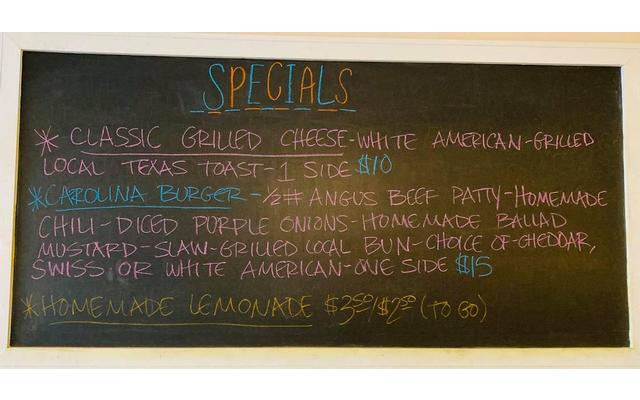 SPECIALS
* CLASSIC GRILLED CHEESE-WHITE AMERICAN-GRILLED
LOCAL TEXAS TOAST-1 SIDE $10
*CAROLINA BURGER-1/2# ANGUS BEEF PATTY-HOMEMADE
CHILI-DICED PURPLE ONIONS-HOMEMADE BALLAD
MUSTARD-SLAW-GRILLED LOCAL BUN-CHOICE OF-CHEDDAR,
SWISS OR WHITE AMERICAN-ONE SIDE $15
*HOMEMADE LEMONADE $3.50/$2.50 (TO GO)